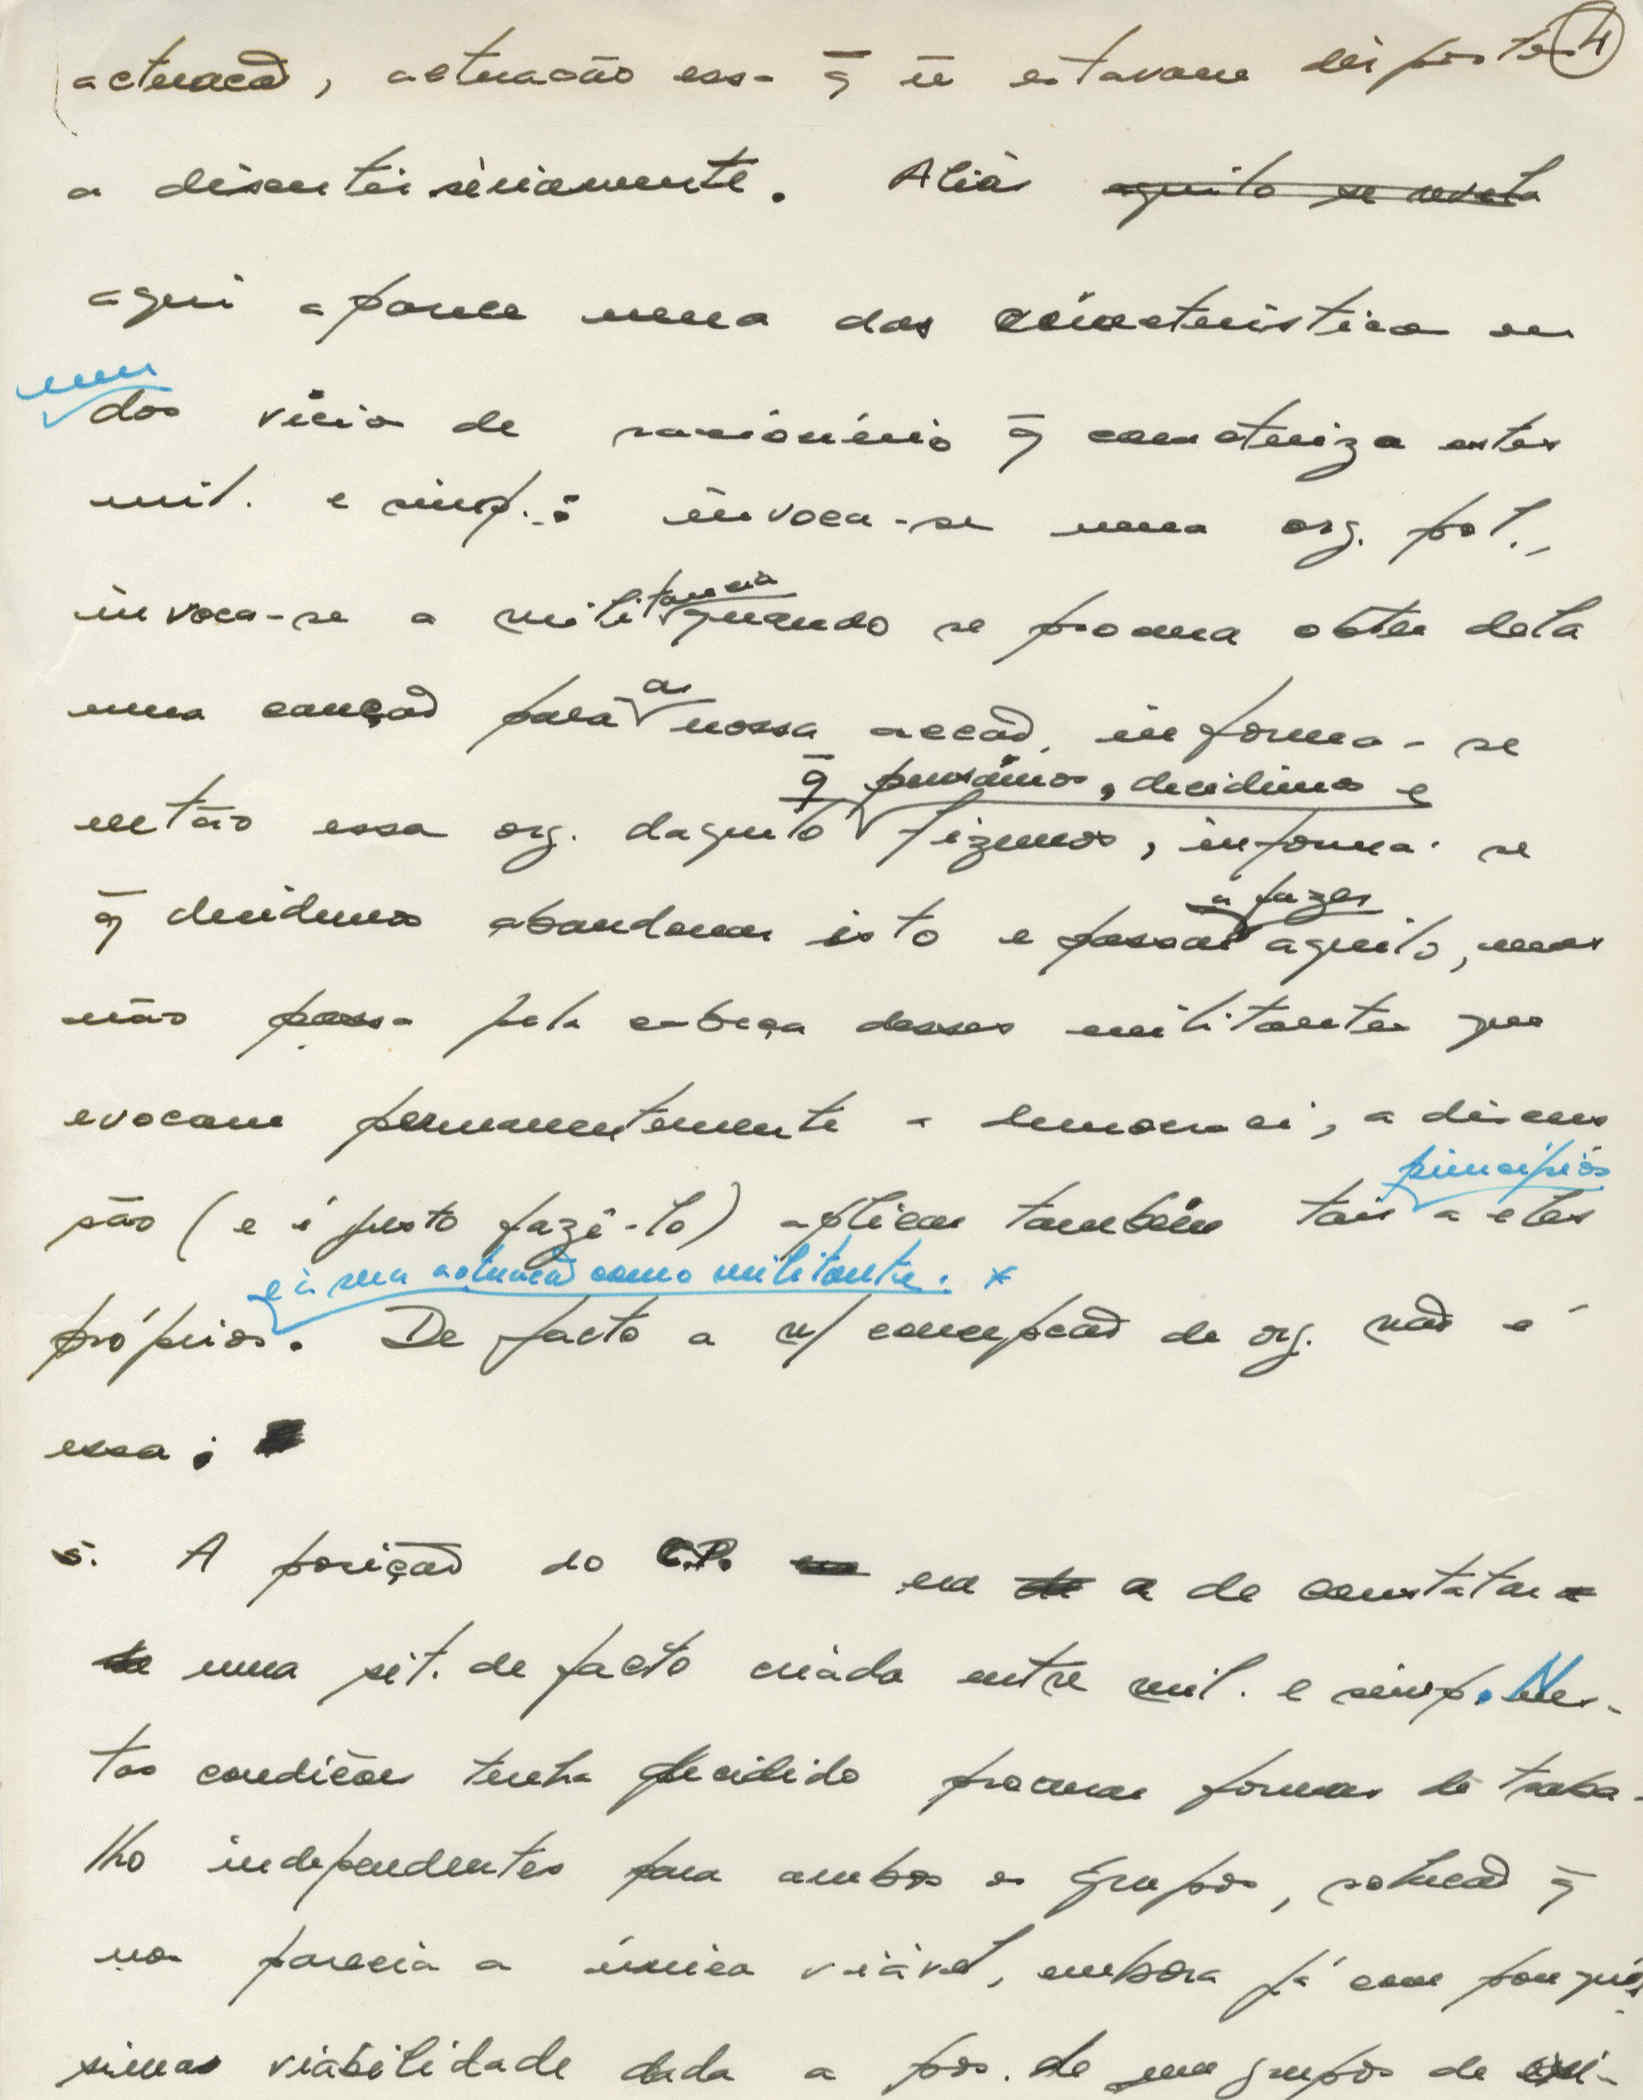 4
actuação, actuação essa q̄ ñ estavam dispostos
a discutir sèriamente. Aliás aquilo se revela
aqui aparece uma das característica ou
um
dos vícios de raciocínio q̄ caracteriza estes
mil. e simp.: invoca-se uma org. pol.,
invoca-se a militância quando se procura obter dela
uma caução para as nossa acção, informa-se
q̄ pensámos, decidimos e
então essa org. daquilo fizemos, informa-se
a fazer
q̄ decidimos abandonar isto e passar aquilo, mas
não passa pela cabeça desses militantes que
evocam permanentemente a democraci, a discus
princípios
são (e é justo fazê-lo) aplicar também tais a eles
e à sua actuação como militante. *
próprios. De facto a n/ concepção de org. não é
essa;
5. A posição do C.P. era a de constatar
uma sit. de facto criada entre mil. e simp. Nes-
tas condições tinha decidido procurar formas de traba-
lho independentes para ambos os grupos, solução q̄
nos parecia a única viável, embora já com pouquís
simas viabilidade dada a pos. de um grupos de mi-